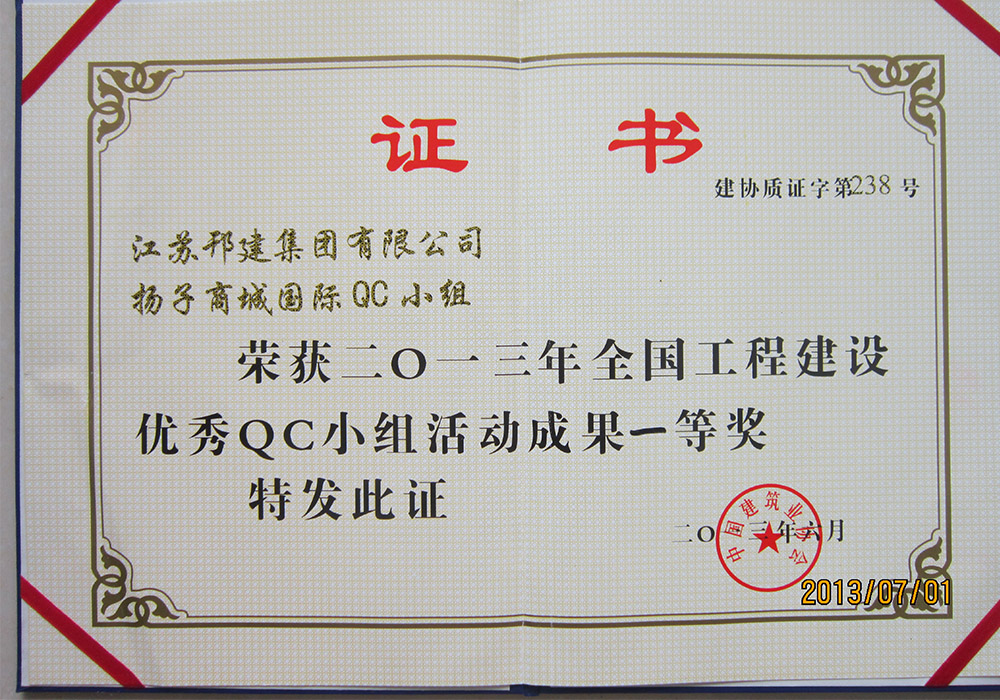 证书
建协质证字第238号
江苏邗建集团有限公司
扬子商城国际QC小组
荣获二O一三年全国工程建设
优秀QC小组活动成果一等奖
特发此证
二O一三年六月
中国建筑业协会
2013/07/01